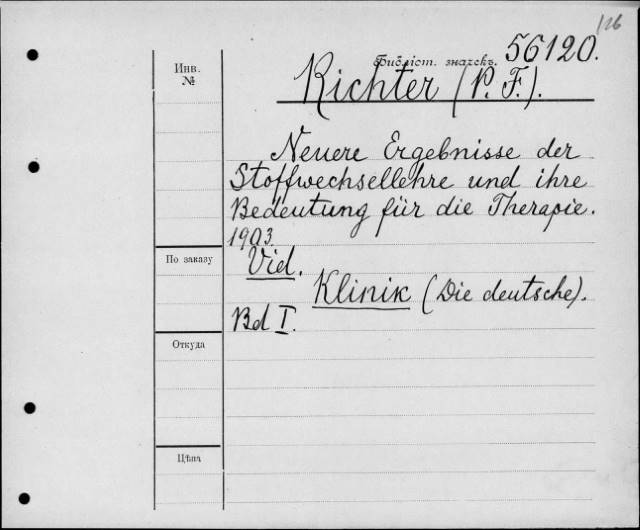 126
Библіот. значекъ. 56120.
Инв.
№
Richter (P. F.).
Neuere Ergebnisse der
Stoffwechsellehre und ihre
Bedeutung für die Therapie.
1903.
По заказу
Vid.
Klinik (Die deutsche).
Bd I.
Откуда
Цѣна